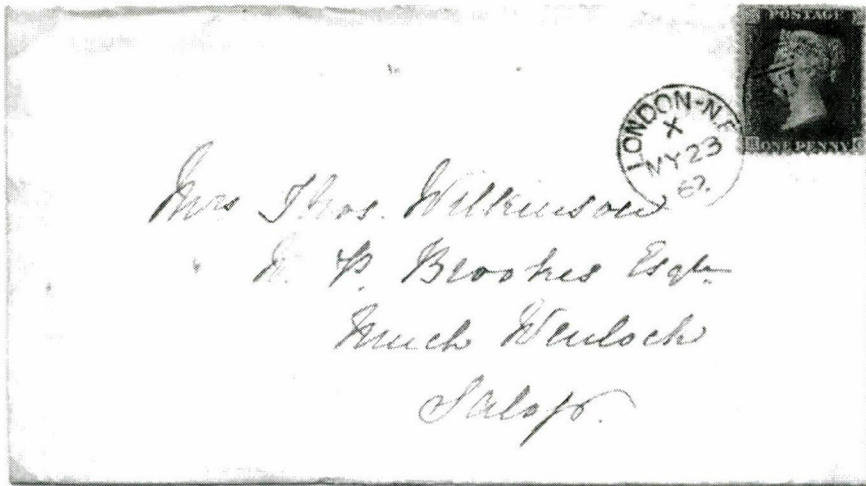 POSTAGE
ONE PENNY
LONDON-N.E
X
MY 23
Mrs Thos. Wilkinson
W. P. Brookes Esqre
Much Wenlock
Salop.